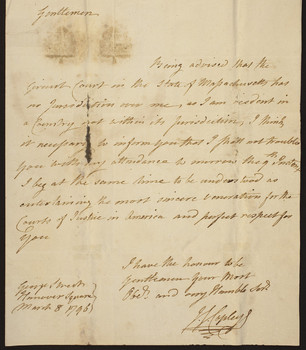 Gentlemen
Being advised that the
Circuit Court in the State of Massachusetts has
no Jurisdiction over me, as I am resident in
a Country not within its Jurisdiction, I think
it necessary to inform you that I shall not trouble
you with my attendance to morrow the 9th Instant
I beg at the same time to be understood as
entertaining the most sincere veneration for the
Courts of Justice in America and perfect respect for
You
I have the honour to be
Gentlemen Your Most
Obedt and very Humble Servt
George Street
Hanover Square
March 8 1796